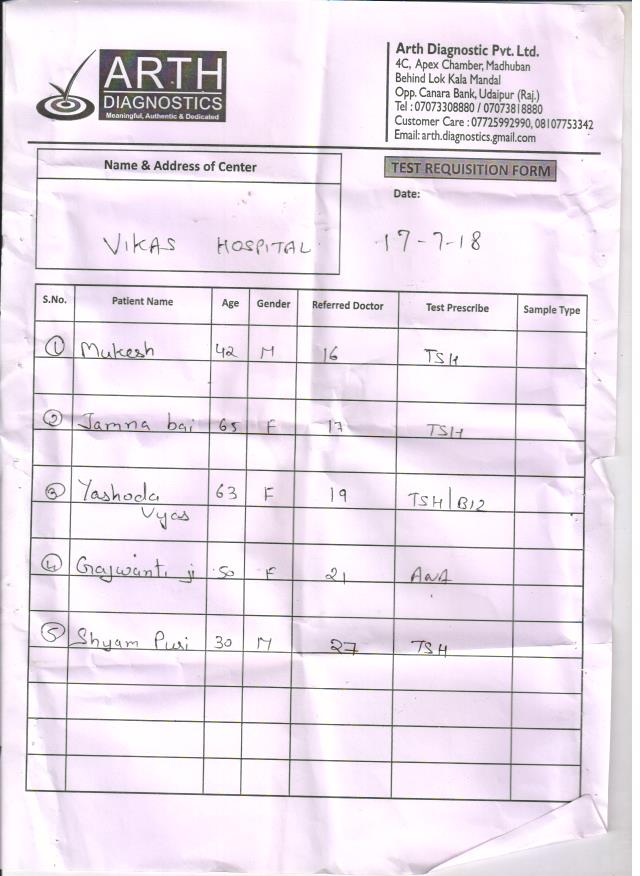 ARTH
DIAGNOSTICS
Meaningful, Authentic & Dedicated
Arth Diagnostic Pvt. Ltd.
4C, Apex Chamber, Madhuban
Behind Lok Kala Mandal
Opp. Canara Bank, Udaipur (Raj.)
Tel : 07073308880 / 07073818880
Customer Care : 07725992990, 08107753342
Email: arth.diagnostics.gmail.com
Name & Address of Center
VIKAS HOSPITAL
TEST REQUISITION FORM
Date:
17-7-18
S.No. Patient Name Age Gender Referred Doctor Test Prescribe Sample Type
1 Mukesh 42 M 16 TSH
2 Jamna bai 65 F 17 TSH
3 Yashoda 63 F 19 TSH/B12
Vyas
4 Gajwanti ji 50 F 21 ANA
5 Shyam Puri 30 M 27 TSH